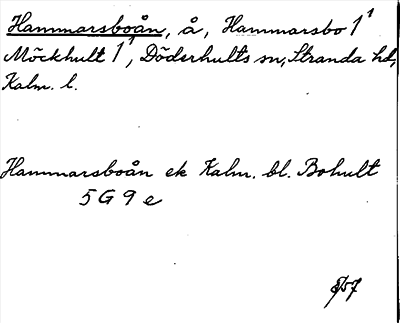 Hammarsboån, å, Hammarsbo 1¹
Möckhult 1¹, Döderhults sn, Stranda hd,
Kalm. l.
Hammarsboån ek Kalm. bl. Bohult
5G9e